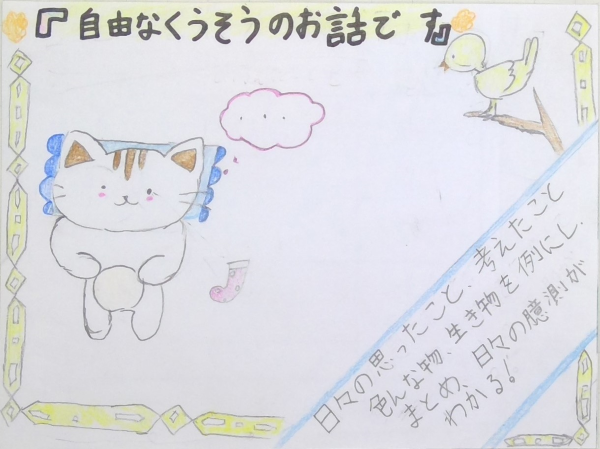 『自由なくうそうのお話です』
...
日々の思ったこと、考えたこと
色んな物、生き物を例にし、
まとめ、日々の臆測が
わかる!